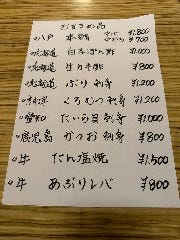 おすすめ品
○八戸 本鯖 ¥1,800
¥700
○北海道 白子ぽん酢 ¥1,000
○北海道 生カキ酢 ¥800
○北海道 ぶり刺身 ¥1,200
くろむつ刺身 ¥1,200
○愛知 たいら貝刺身 ¥1,000
○鹿児島 かつお刺身 ¥800
○牛 たん塩焼 ¥1,500
○牛 あぶりレバ ¥800